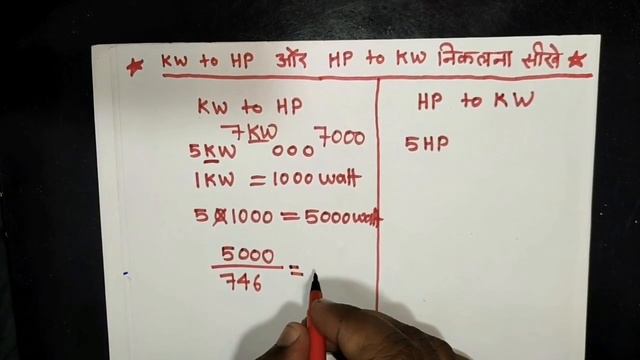 ★ KW to HP और HP to KW निकलना सीखे ★
KW to HP
7KW 7000
5KW 000
1KW = 1000 watt
5 × 1000 = 5000 watt
5000
746 =
HP to KW
5HP